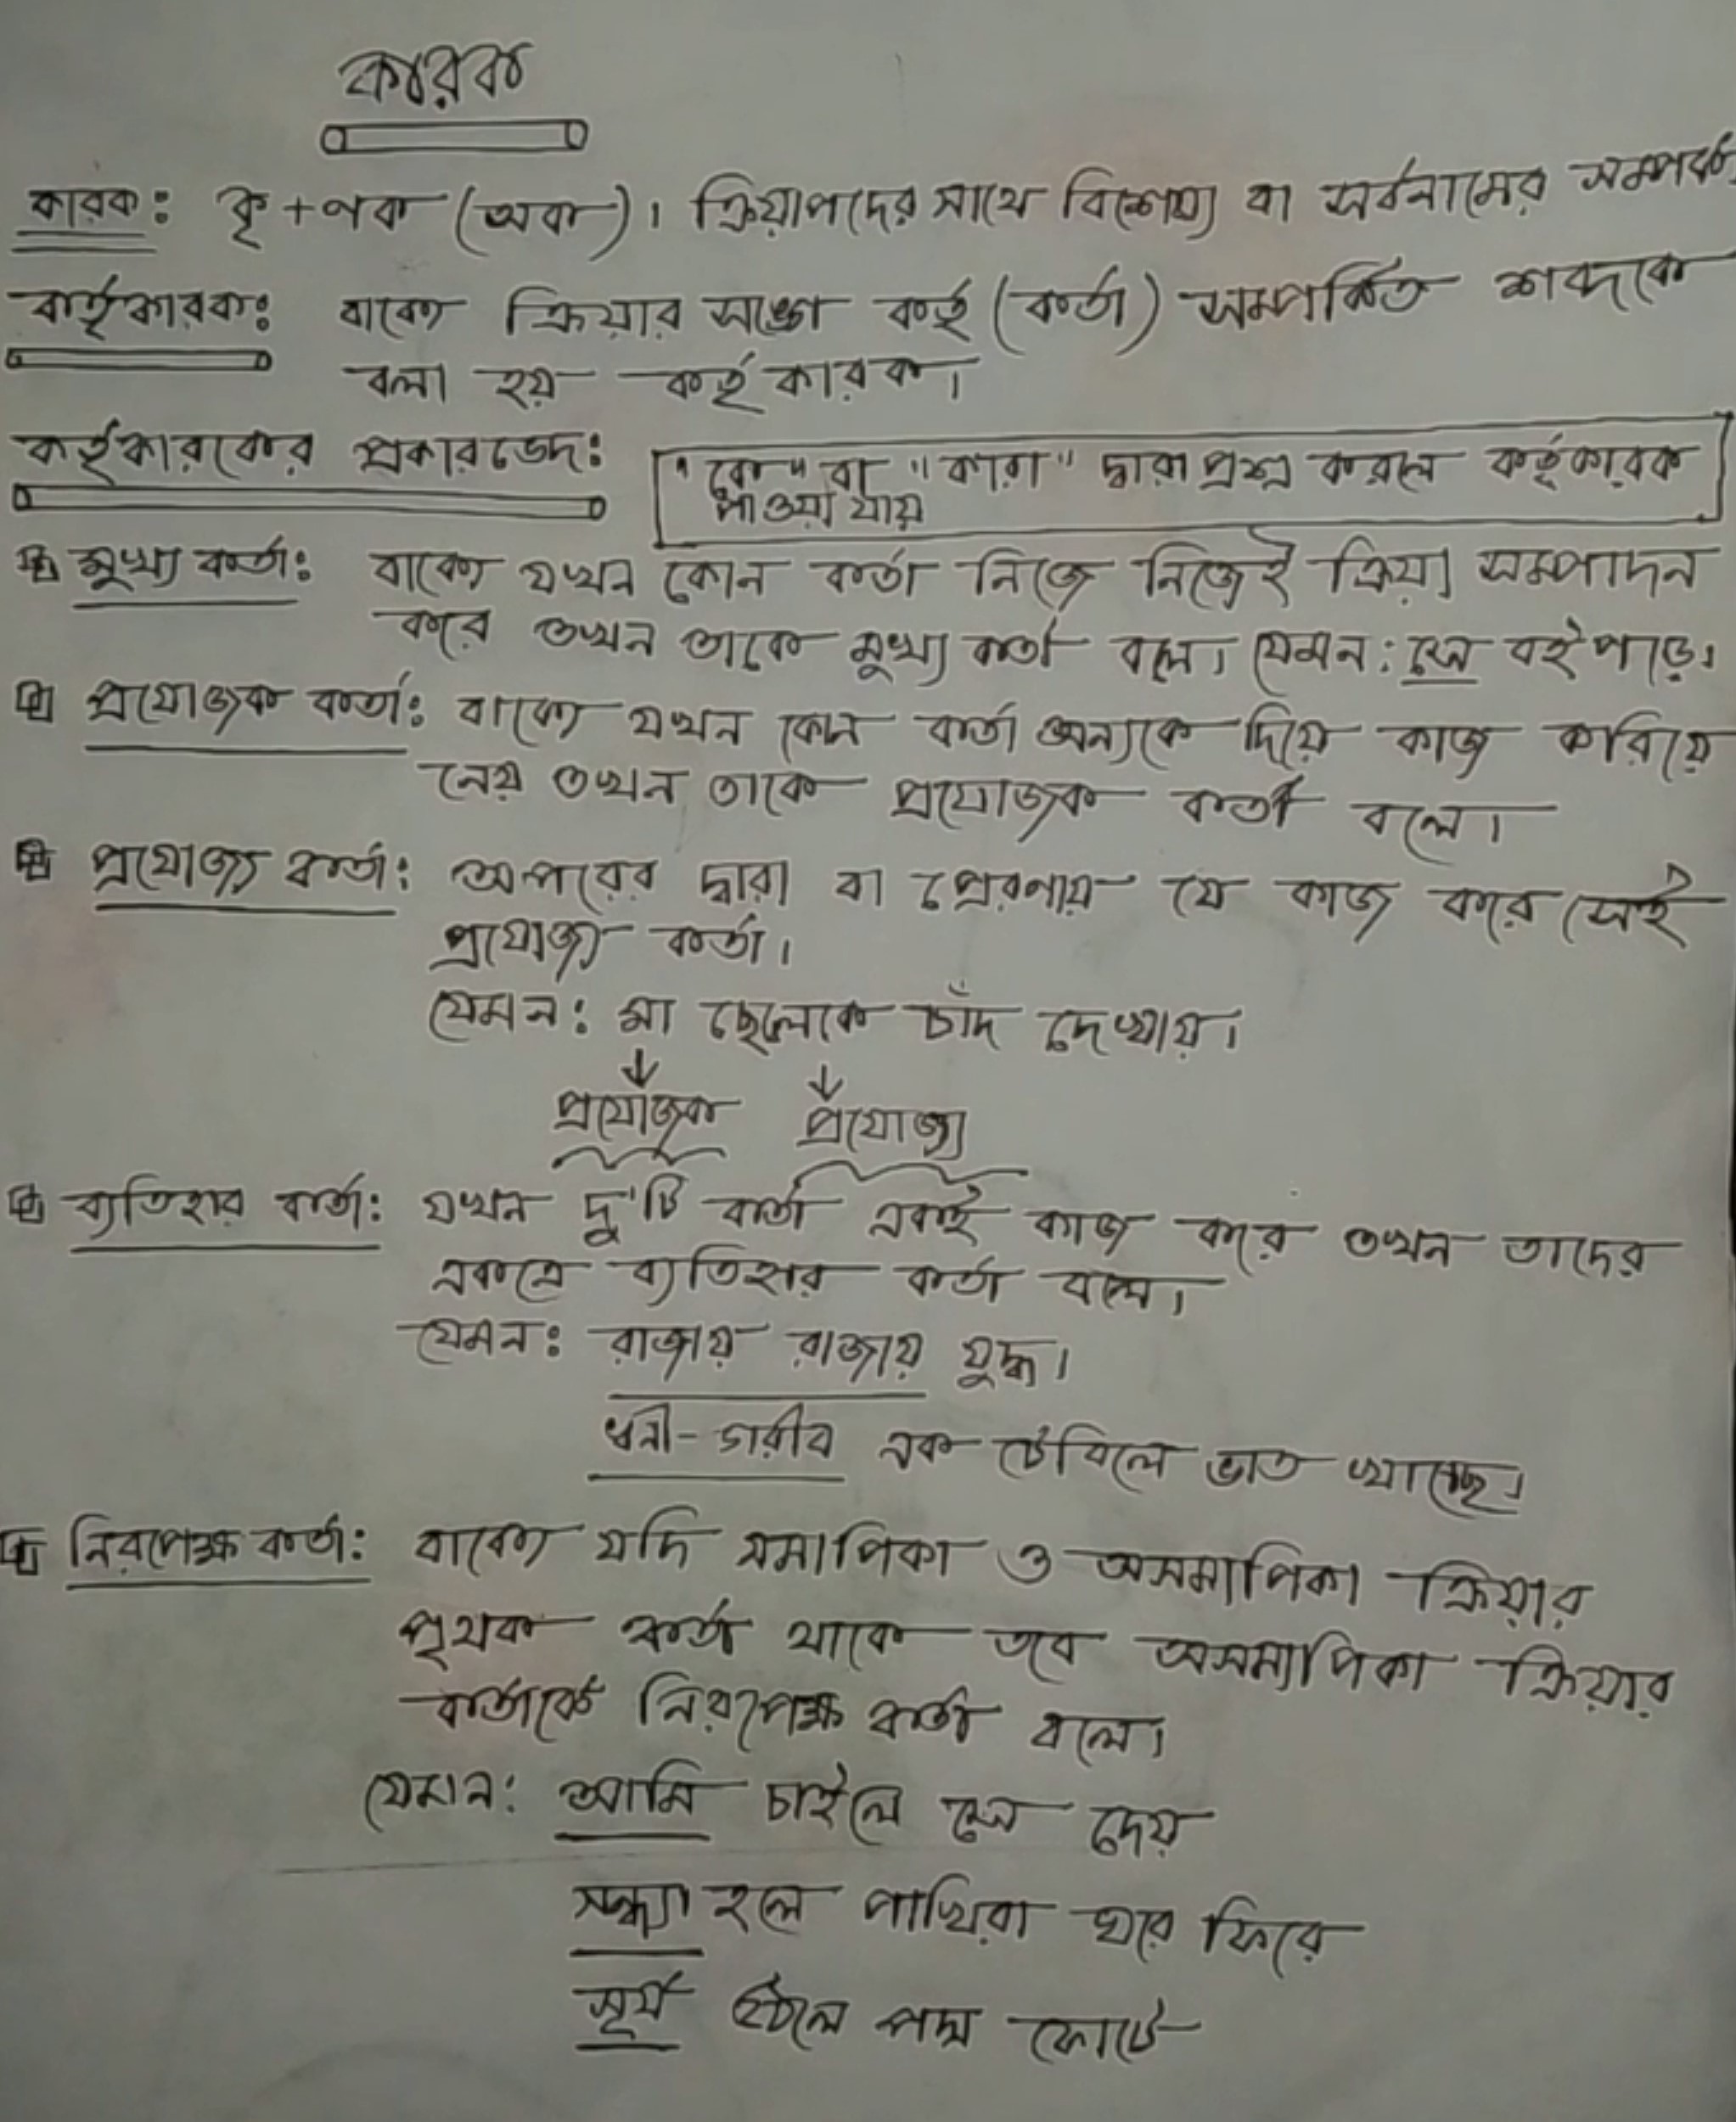 কারক
কারক: কৃ + ণক (অক)। ক্রিয়াপদের সাথে বিশেষ্য বা সর্বনামের সম্পর্ক
কর্তৃকারক: বাক্যে ক্রিয়ার সঙ্গে কর্তৃ (কর্তা) সম্পর্কিত শব্দকে
বলা হয় কর্তৃকারক।
কর্তৃকারকের প্রকারভেদ: "কে" বা "কারা" দ্বারা প্রশ্ন করলে কর্তৃকারক
পাওয়া যায়
মুখ্য কর্তা: বাক্যে যখন কোন কর্তা নিজে নিজেই ক্রিয়া সম্পাদন
করে তখন তাকে মুখ্য কর্তা বলে। যেমন: সে বই পড়ে।
প্রযোজক কর্তা: বাক্যে যখন কোন কর্তা অন্যকে দিয়ে কাজ করিয়ে
নেয় তখন তাকে প্রযোজক কর্তা বলে।
প্রযোজ্য কর্তা: অপরের দ্বারা বা প্রেরণায় যে কাজ করে সেই
প্রযোজ্য কর্তা।
যেমন: মা ছেলেকে চাঁদ দেখায়।
↓ ↓
প্রযোজক প্রযোজ্য
ব্যতিহার কর্তা: যখন দু'টি কর্তা একই কাজ করে তখন তাদের
একত্রে ব্যতিহার কর্তা বলে।
যেমন: রাজায় রাজায় যুদ্ধ।
ধনী-গরীব এক টেবিলে ভাত খাচ্ছে।
নিরপেক্ষ কর্তা: বাক্যে যদি সমাপিকা ও অসমাপিকা ক্রিয়ার
পৃথক কর্তা থাকে তবে অসমাপিকা ক্রিয়ার
কর্তাকে নিরপেক্ষ কর্তা বলে।
যেমন: আমি চাইলে সে দেয়
সন্ধ্যা হলে পাখিরা ঘরে ফিরে
সূর্য উঠলে পদ্ম ফোটে